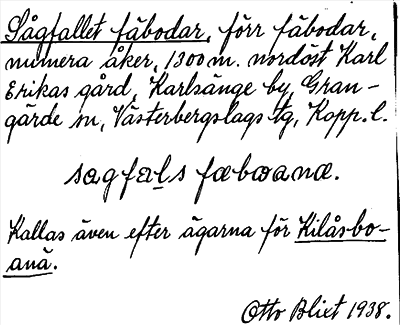 Sågfallet fäbodar, förr fäbodar,
numera åker, 1300 m. nordöst Karl
Erikas gård, Karlsänge by, Gran-
gärde sn, Västerbergslags tg, Kopp. l.
sagfals fæboanæ.
Kallas även efter ägarna för Kilåsbo-
anä.
Otto Blixt 1938.